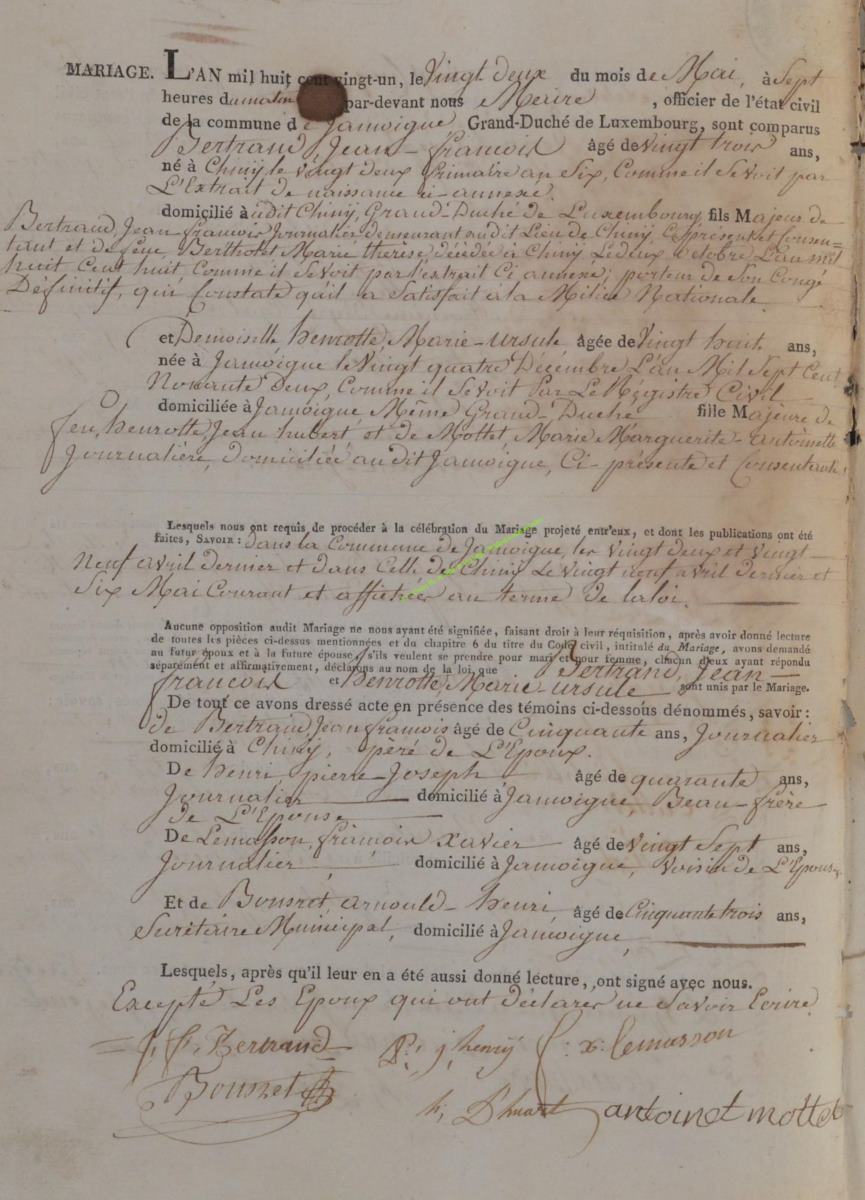 MARIAGE. L'AN mil huit cent vingt-un, le Vingt deux du mois de Mai, à Sept
heures du matin par-devant nous Maire, officier de l'état civil
de la commune de Jamoigne Grand-Duché de Luxembourg, sont comparus
Bertrand, Jean-françois âgé de Vingt trois ans,
né à Chiny le vingt deux frimaire an Six, Comme il Se Voit par
L'Extrait de naissance ci-annexé.
domicilié audit Chiny, Grand-Duché de Luxembourg, fils Majeur de
Bertrand, Jean-françois Journalier demeurant audit Lieu de Chiny, ci présent et Consen-
tant et de feue, Bertholet Marie thérèse, décédée à Chiny Le deux octobre L'an mil
huit Cent huit Comme il Se Voit par l'extrait Ci annexé; porteur de Son Congé
Définitif, qui Constate qu'il a Satisfait à la Milice Nationale
et Demoiselle henrotte, Marie-ursule âgée de Vingt huit ans,
née à Jamoigne le Vingt quatre Décembre L'an Mil Sept Cent
Nonante Deux, Comme il Se Voit Par Le Régistre Civil
domiciliée à Jamoigne Même Grand-Duché fille Majeure de
feu, henrotte, Jean hubert et de Mottet, Marie Marguerite-antoinette
Journalière, domiciliée au dit Jamoigne, Ci-présente et Consentante.
Lesquels nous ont requis de procéder à la célébration du Mariage projeté entr'eux, et dont les publications ont été
faites, SAVOIR: dans la Commune de Jamoigne, les Vingt deux et Vingt-
Neuf avril dernier et dans Celle de Chiny Le Vingt neuf avril dernier et
Six Mai Courant et affichées au terme de la loi.
Aucune opposition audit Mariage ne nous ayant été signifiée, faisant droit à leur réquisition, après avoir donné lecture
de toutes les pièces ci-dessus mentionnées et du chapitre 6 du titre du Code civil, intitulé du Mariage, avons demandé
au futur époux et à la future épouse, s'ils veulent se prendre pour mari et pour femme, chacun d'eux ayant répondu
séparément et affirmativement, déclarons au nom de la loi, que Bertrand, Jean-
francois et henrotte, Marie-ursule sont unis par le Mariage.
De tout ce avons dressé acte en présence des témoins ci-dessous dénommés, savoir:
de Bertrand Jean françois âgé de Cinquante ans, Journalier
domicilié à Chiny, père de L'Epoux.
De henri pierre-Joseph âgé de quarante ans,
Journalier domicilié à Jamoigne, Beau-frère
de L'Epouse
De Lemasson, françois Xavier âgé de Vingt Sept ans,
Journalier, domicilié à Jamoigne, Voisin de L'Epouse
Et de Bousret, arnould-henri, âgé de Cinquante trois ans,
Secrétaire Municipal, domicilié à Jamoigne
Lesquels, après qu'il leur en a été aussi donné lecture, ont signé avec nous.
Excepté Les Epoux qui ont déclarés ne Savoir Ecrire
j. f. Bertrand P. j henry f: x: lemasson
Bousret antoinet mottet